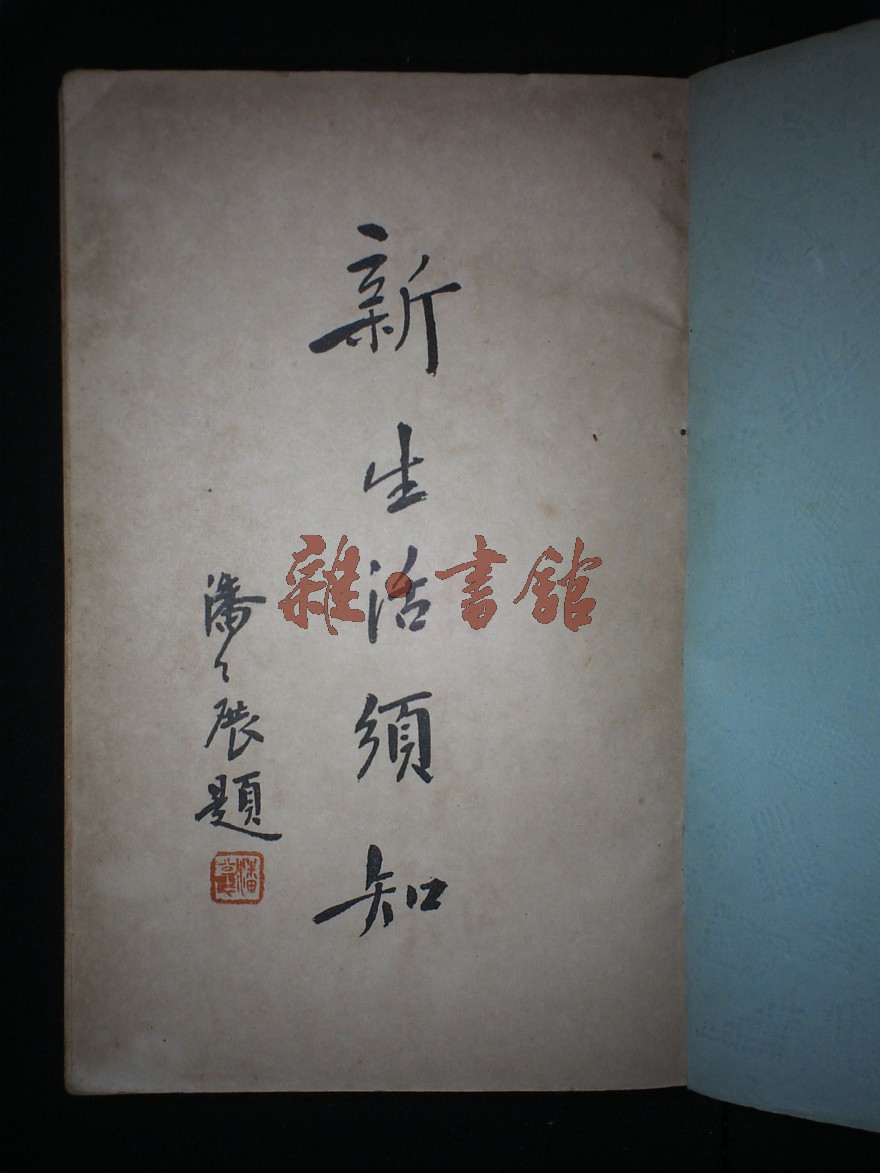 新生活須知
潘公展題
潘公展
雜·書館